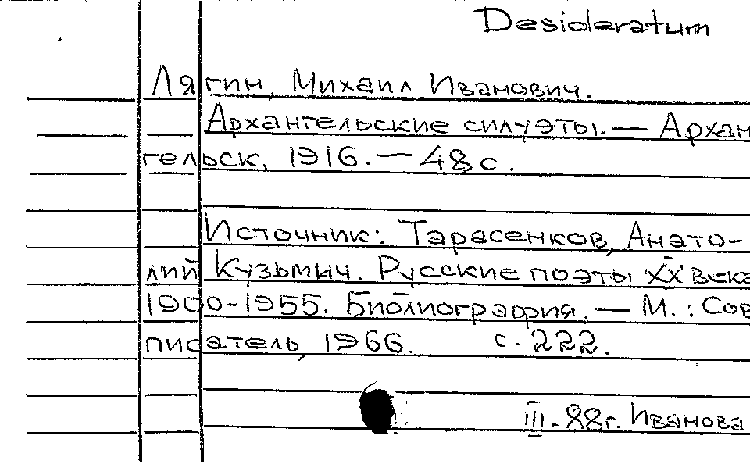 Desideratum
Лягин, Михаил Иванович.
Архангельские силуэты. — Архан
гельск, 1916. — 48 с.
Источник: Тарасенков, Анато-
лий Кузьмич. Русские поэты XX века
1900-1955. Библиография. — М.: Сов
писатель, 1966. с. 222.
III. 88г. Иванова